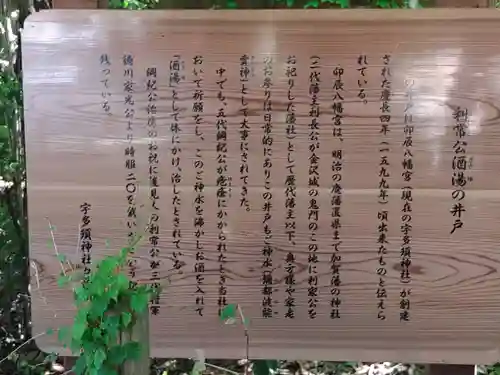 利常公酒湯の井戸
この井戸は卯辰八幡宮(現在の宇多須神社)が創建
された慶長四年(一五九九年)頃出来たものと伝えら
れている。
卯辰八幡宮は、明治の廃藩置県まで加賀藩の神社
(二代藩主利長公が金沢城の鬼門のこの地に利家公を
お祀りした藩社)として歴代藩主以下、奥方様や家老
のお参りは日常的にありこの井戸もご神水
霊神」として大事にされてきた。
中でも、五代綱紀公が疱瘡にかかられたとき当社
おいて祈願をし、このご神水を沸かしお酒を入れて
「酒湯」として体にかけ、治したとされている。
綱紀公治癒のお祝に後見人の利常公が三代将軍
徳川家光公より時服二〇を戴いた
残っている。
宇多須神社